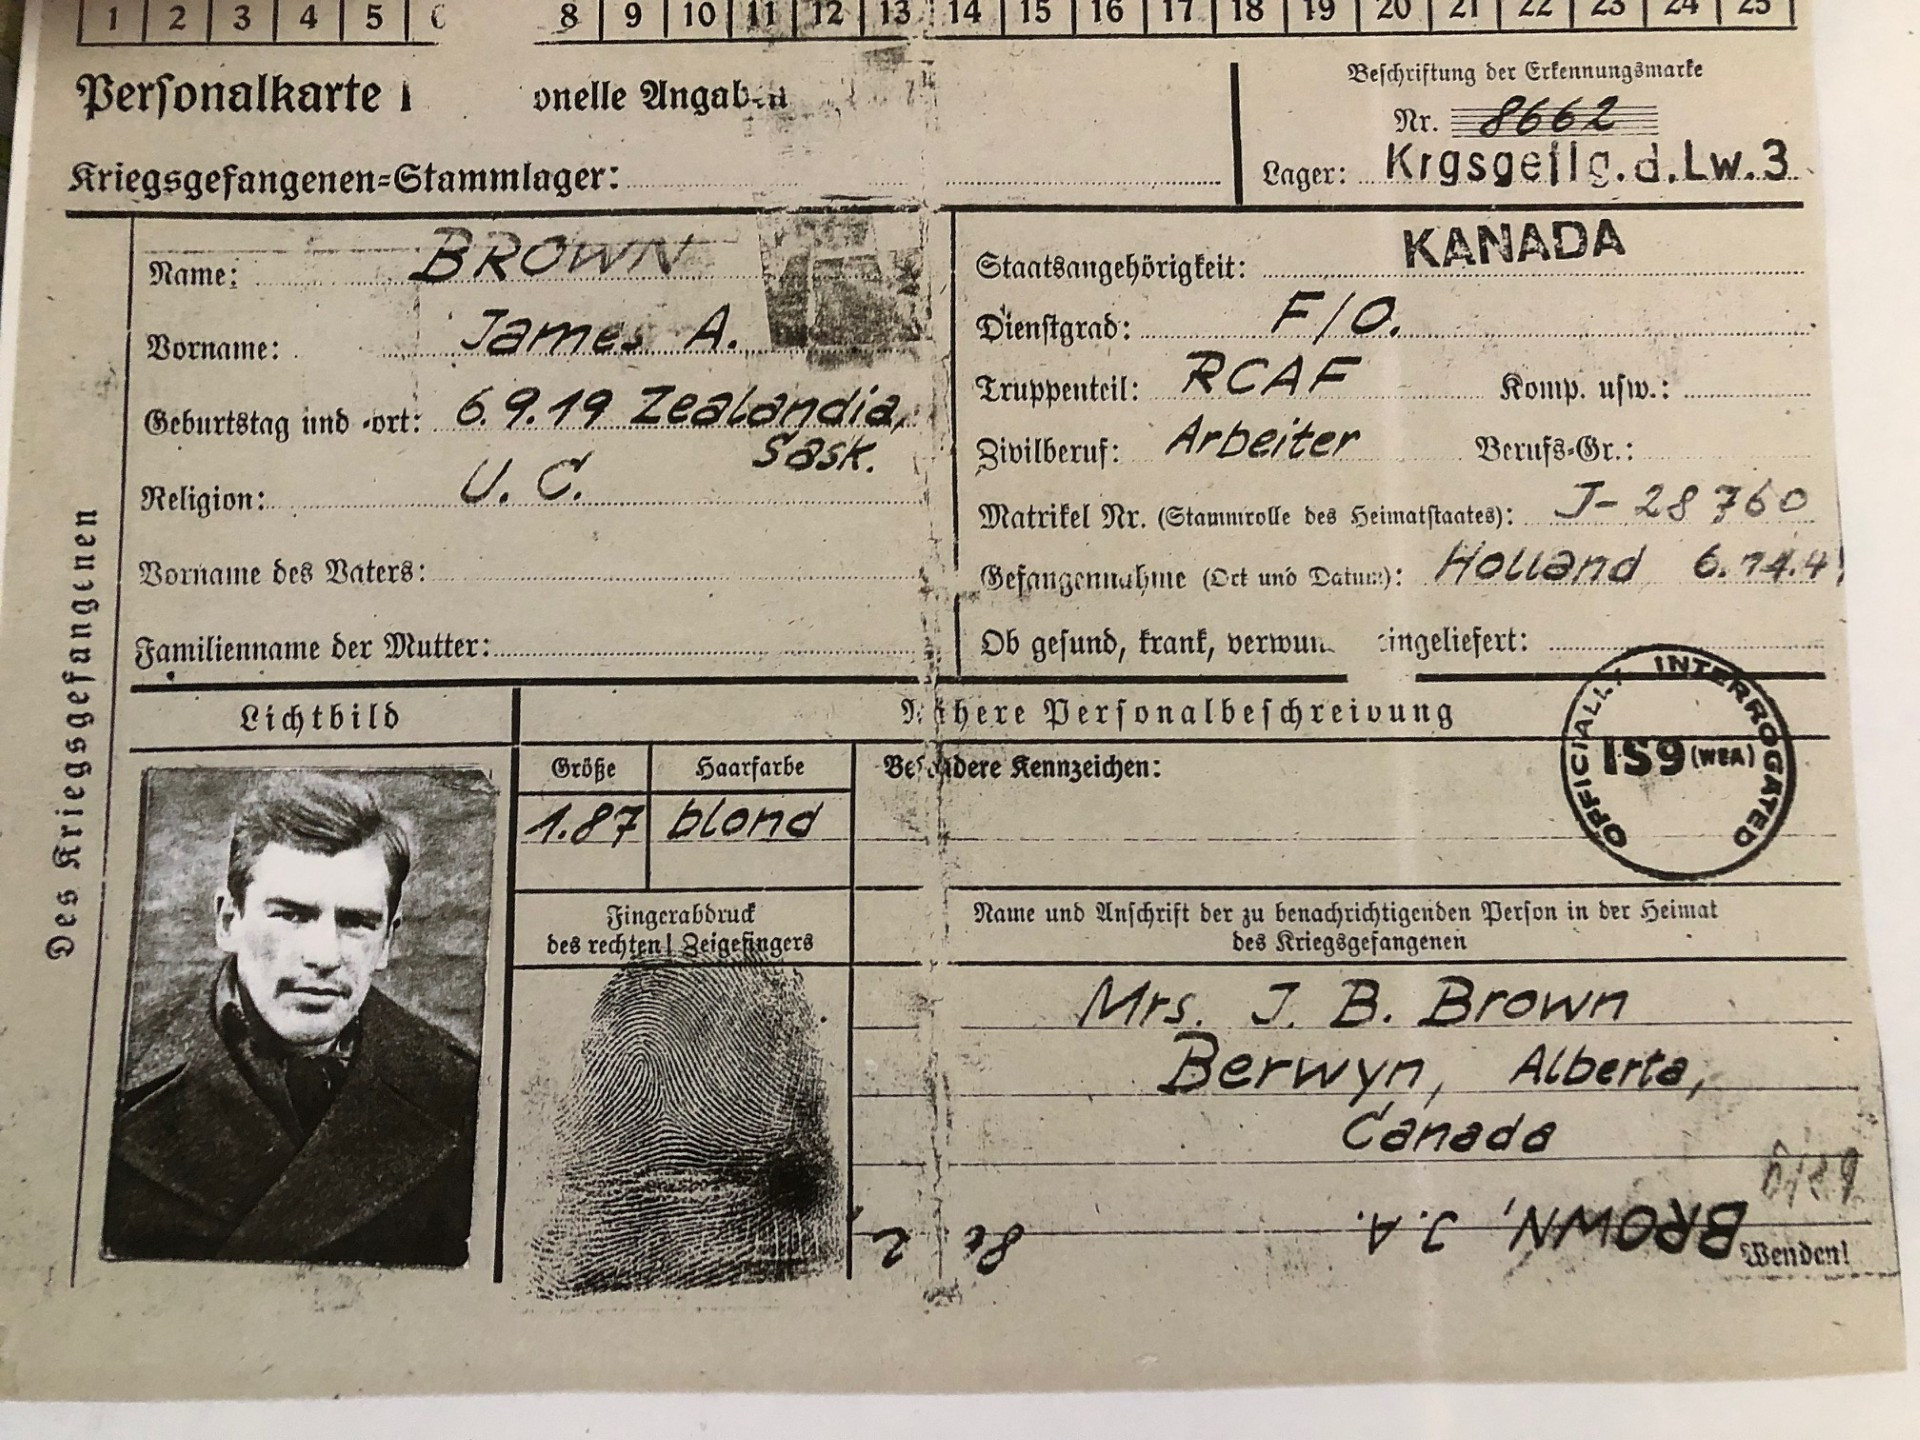 1 2 3 4 5 8 9 10 11 12 13 14 15 16 17 18 19 20 21 22 23 24 25
Personalkarte I onelle Angaben
Beschriftung der Erkennungsmarke
Nr. 8662
Kriegsgefangenen-Stammlager:
Lager: Krgsgeflg.d.Lw.3
Des Kriegsgefangenen
Name: BROWN
Vorname: James A.
Geburtstag und -ort: 6.9.19 Zealandia,
Sask.
Religion: U. C.
Vorname des Vaters:
Familienname der Mutter:
Staatsangehörigkeit: KANADA
Dienstgrad: F/O.
Truppenteil: RCAF Komp. usw.:
Zivilberuf: Arbeiter Berufs-Gr.:
Matrikel Nr. (Stammrolle des Heimatstaates): J-28760
Gefangennahme (Ort und Datum): Holland
Ob gesund, krank, verwun ingeliefert:
Lichtbild
Nähere Personalbeschreibung
Größe
1.87
Haarfarbe
blond
Besondere Kennzeichen:
OFFICIALLY INTERROGATED
IS9 (WEA)
Fingerabdruck
des rechten! Zeigefingers
Name und Anschrift der zu benachrichtigenden Person in der Heimat
des Kriegsgefangenen
Mrs. J. B. Brown
Berwyn, Alberta,
Canada
BROWN, J.A.
Wenden!